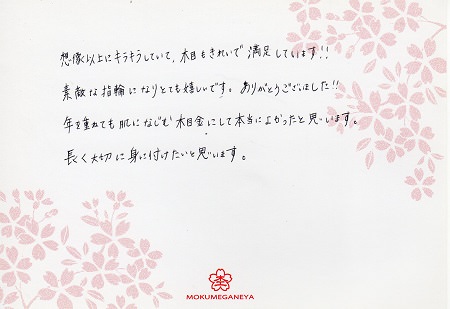 想像以上にキラキラしていて、木目もきれいで満足しています!!
素敵な指輪になりとても嬉しいです。ありがとうございました!!
年を重ねても肌になじむ木目金にして本当によかったと思います。
長く大切に身に付けたいと思います。
MOKUMEGANEYA